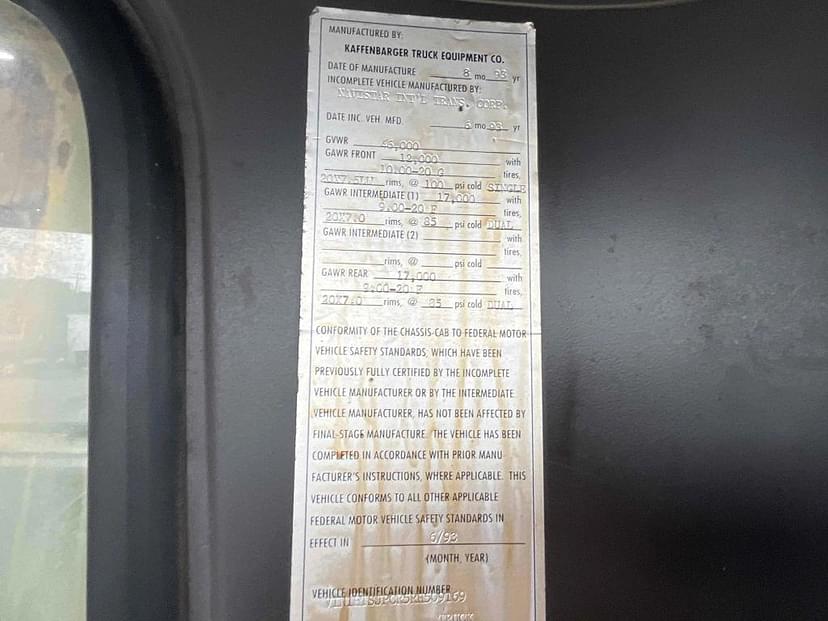 MANUFACTURED BY:
KAFFENBARGER TRUCK EQUIPMENT CO.
DATE OF MANUFACTURE 8 mo 93 yr
INCOMPLETE VEHICLE MANUFACTURED BY:
NAVISTAR INT'L TRANS. CORP.
DATE INC. VEH. MFD. 6 mo 93 yr
GVWR 46,000
GAWR FRONT 12,000 with
10:00-20 G tires,
20X7.5 rims, @ 100 psi cold SINGLE
GAWR INTERMEDIATE (1) 17,000 with
9:00-20 F tires,
20X7.0 rims, @ 85 psi cold DUAL
GAWR INTERMEDIATE (2) with
tires,
rims, @ psi cold
GAWR REAR 17,000 with
9:00-20 F tires,
20X7.0 rims, @ 85 psi cold DUAL
CONFORMITY OF THE CHASSIS-CAB TO FEDERAL MOTOR
VEHICLE SAFETY STANDARDS, WHICH HAVE BEEN
PREVIOUSLY FULLY CERTIFIED BY THE INCOMPLETE
VEHICLE MANUFACTURER OR BY THE INTERMEDIATE
VEHICLE MANUFACTURER, HAS NOT BEEN AFFECTED BY
FINAL-STAGE MANUFACTURE. THE VEHICLE HAS BEEN
COMPLETED IN ACCORDANCE WITH PRIOR MANU-
FACTURER'S INSTRUCTIONS, WHERE APPLICABLE. THIS
VEHICLE CONFORMS TO ALL OTHER APPLICABLE
FEDERAL MOTOR VEHICLE SAFETY STANDARDS IN
EFFECT IN 6/93
(MONTH, YEAR)
VEHICLE IDENTIFICATION NUMBER